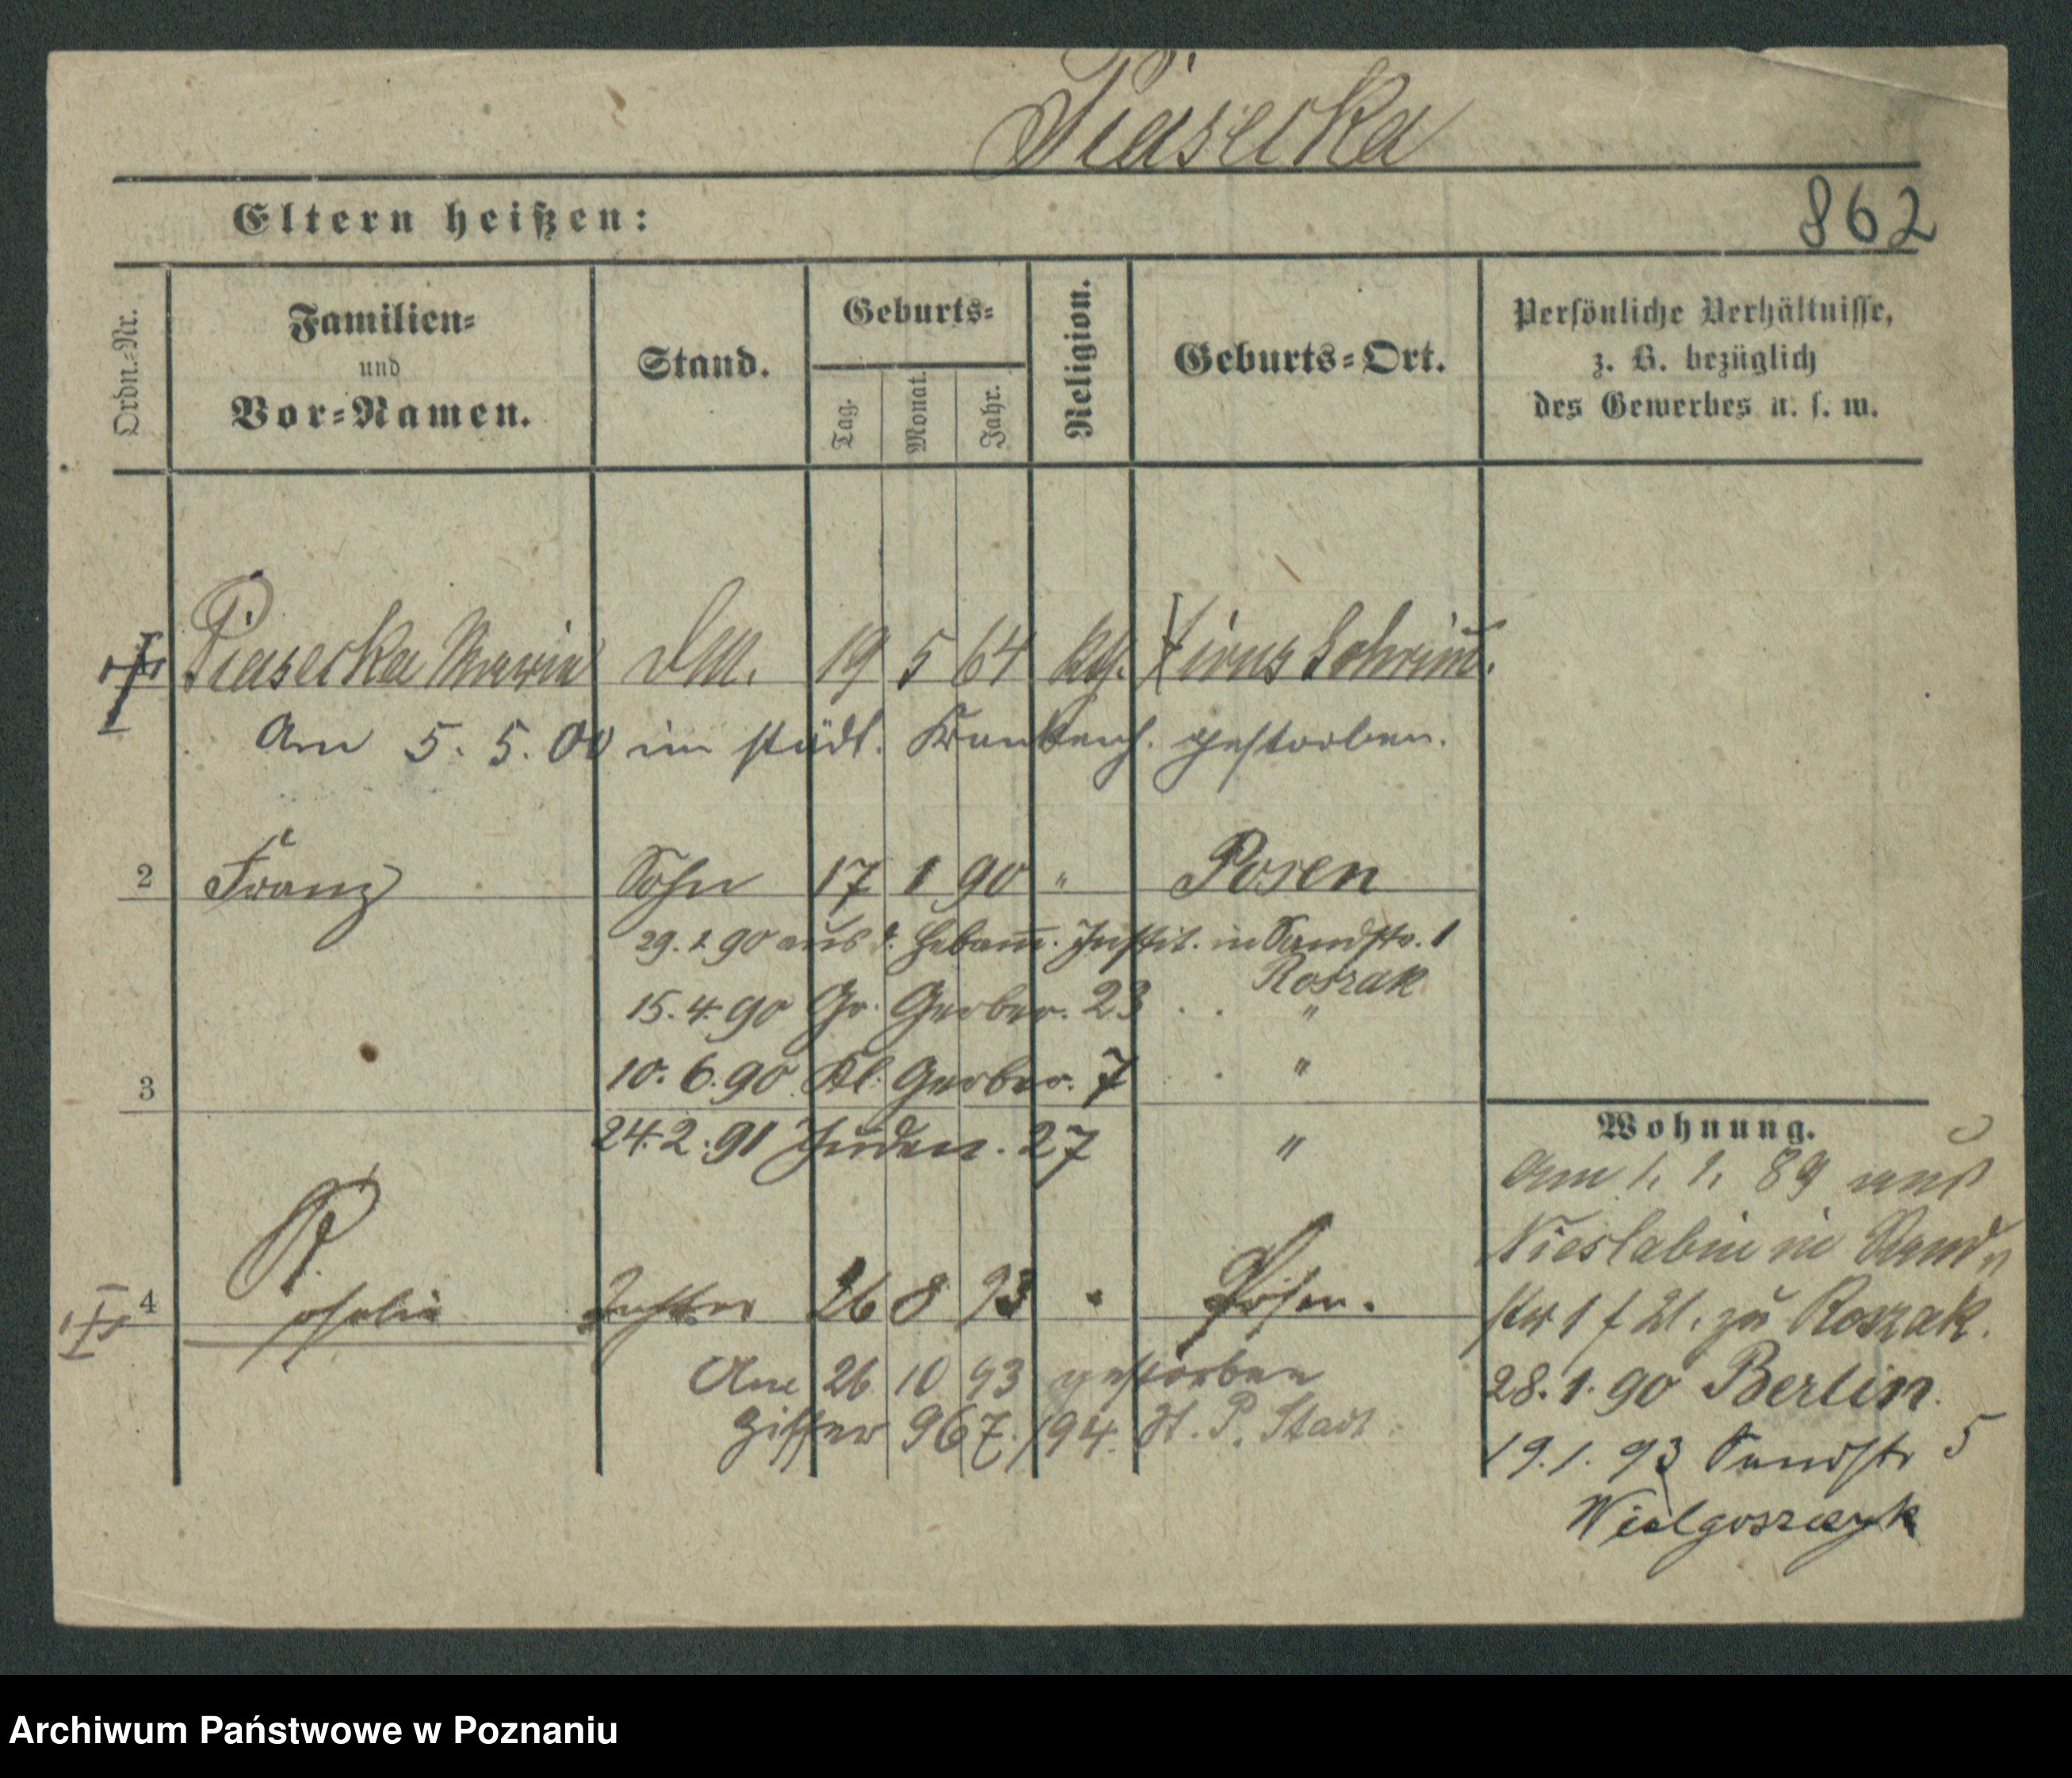 Piasecka
Eltern heißen:
862
Ordn.-Nr.
Familien-
und
Vor-Namen.
Stand.
Geburts-
Tag.
Monat.
Jahr.
Religion.
Geburts-Ort.
Persönliche Verhältnisse,
z. B. bezüglich
des Gewerbes u. s. w.
Piasecka Maria DM. 19 5 64 kth. Xions Schrim̄.
Am 5. 5. 00 im städt. Krankenh. gestorben.
2 Franz Sohn 17 1 90 " Posen
29. 1. 90 aus d. Hebam̄. Instit. in Sandstr. 1
Roszak
15. 4. 90 Gr. Gerber. 23 . . "
10. 6. 90 Kl. Gerber. 7 . . "
3
24. 2. 91 Juden. 27 "
4 Rosalia Tochter 26 8 93 " Posen.
Am 26 10 93 gestorben
Ziffer 967./94. St. P. Stadt.
Wohnung.
Am 1. 1. 89 aus
Nieslabin in Sand-
str 1 f 21. zu Roszak.
28. 1. 90 Berlin.
19. 1. 93 Sandstr 5
Wielgoszczyk
Archiwum Państwowe w Poznaniu